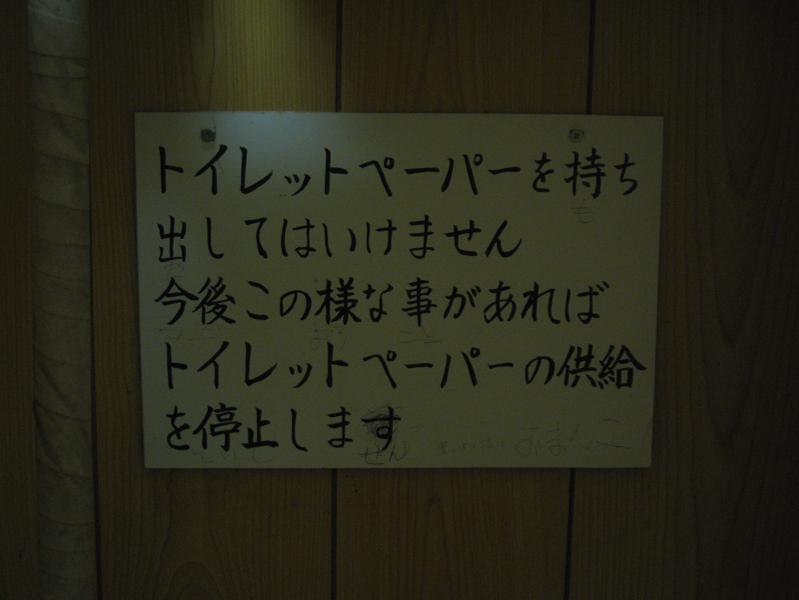 トイレットペーパーを持ち
出してはいけません
今後この様な事があれば
トイレットペーパーの供給
を停止します
せん